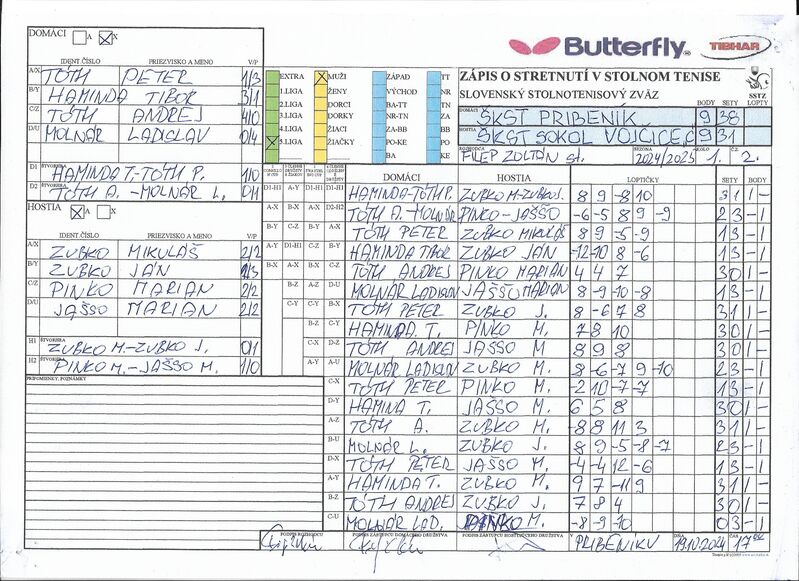 DOMÁCI A X
IDENT.ČÍSLO PRIEZVISKO A MENO V/P
A/X TÓTH PETER 1/3
B/Y HAMINDA TIBOR 3/1
C/Z TÓTH ANDREJ 4/0
D/U MOLNÁR LADISLAV 0/4
D1 ŠTVORHRA HAMINDA T-TÓTH P. 1/0
D2 ŠTVORHRA TÓTH A.-MOLNÁR L. 0/1
HOSTIA A X
IDENT.ČÍSLO PRIEZVISKO A MENO V/P
A/X ZUBKO MIKULÁŠ 2/2
B/Y ZUBKO JÁN
C/Z PINKO MARIAN 2/2
D/U JAŠŠO MARIAN 2/2
H1 ŠTVORHRA ZUBKO M.-ZUBKO J. 0/1
H2 ŠTVORHRA PINKO M.-JAŠŠO M. 1/0
PRIPOMIENKY, POZNÁMKY
EXTRA MUŽI ZÁPAD TT
1.LIGA ŽENY VÝCHOD NR
2.LIGA DORCI BA-TT TN
3.LIGA DORKY NR-TN ZA
4.LIGA ŽIACI ZA-BB BB
5.LIGA ŽIAČKY PO-KE PO
BA KE
Butterfly
TIBHAR
ZÁPIS O STRETNUTÍ V STOLNOM TENISE
SLOVENSKÝ STOLNOTENISOVÝ ZVÄZ
SSTZ
BODY SETY LOPTY
DOMÁCI ŠKST PRIBENÍK 9 38
HOSTIA ŠKST SOKOL VOJČICE,C 9 31
ROZHODCA FILEP ZOLTÁN st. SEZÓNA 2024/2025 KOLO 1. Č.Z. 2.
DOMÁCI HOSTIA LOPTIČKY SETY BODY
D1-H1 A-Y D1-H1 D1-H1 HAMINDA-TÓTH P. ZUBKO M-ZUBKO J. 8 9 -8 10 3 1 1 -
A-X B-X A-X D2-H2 TÓTH A.-MOLNÁR PINKO-JAŠŠO -6 -5 8 9 -9 2 3 - 1
B-Y C-Z B-Y A-X TÓTH PETER ZUBKO MIKULÁŠ 8 9 -5 -9 1 3 - 1
A-Y D1-H1 C-Z B-Y HAMINDA TIBOR ZUBKO JÁN -12 -10 8 -6 1 3 - 1
B-X A-X B-X C-Z TÓTH ANDREJ PINKO MARIAN 4 4 7 3 0 1 -
B-Y A-Z D-U MOLNÁR LADISLAV JAŠŠO MARIAN 8 -9 -10 -8 1 3 - 1
C-Y B-X TÓTH PETER ZUBKO J. 8 -6 7 8 3 1 1 -
B-Z C-Y HAMINDA T. PINKO M. 7 8 10 3 0 1 -
C-X D-Z TÓTH ANDREJ JAŠŠO M 8 9 8 3 0 1 -
A-Y A-U MOLNÁR LADISLAV ZUBKO M. 8 -6 -7 9 -10 2 3 - 1
C-X TÓTH PETER PINKO M. -2 10 -7 -7 1 3 - 1
D-Y HAMINA T. JAŠŠO M. 6 5 8 3 0 1 -
A-Z TÓTH A. ZUBKO M. -8 8 11 3 3 1 1 -
B-U MOLNÁR L. ZUBKO J. 8 9 -5 -8 -7 2 3 - 1
D-X TÓTH PETER JAŠŠO M. -4 -4 12 -6 1 3 - 1
A-Y HAMINDA T. ZUBKO M. 9 7 -11 9 3 1 1 -
B-Z TÓTH ANDREJ ZUBKO J. 7 8 4 3 0 1 -
C-U MOLNÁR LAD. PINKO M. -8 -9 -10 0 3 - 1
PODPIS ROZHODCU PODPIS ZÁSTUPCU DOMÁCEHO DRUŽSTVA PODPIS ZÁSTUPCU HOSŤUJÚCEHO DRUŽSTVA V PRIBENÍKU DŇA 19.10.2024 ČAS 17